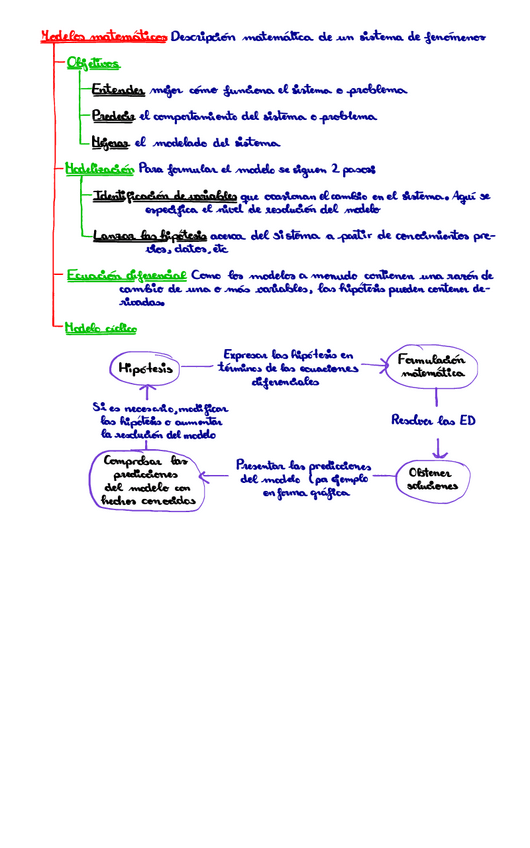 Modelos matemáticos Descripción matemática de un sistema de fenómenos
Objetivos
Entender mejor cómo funciona el sistema o problema
Predecir el comportamiento del sistema o problema
Mejorar el modelado del sistema
Modelización Para formular el modelo se siguen 2 pasos:
Identificación de variables que ocasionan el cambio en el sistema. Aquí se
especifica el nivel de resolución del modelo
Lanzar las hipótesis acerca del sistema a partir de conocimientos pre-
vios, datos, etc
Ecuación diferencial Como los modelos a menudo contienen una razón de
cambio de una o más variables, las hipótesis pueden contener de-
rivadas.
Modelo cíclico
Hipótesis
Expresar las hipótesis en
términos de las ecuaciones
diferenciales
Formulación
matemática
Si es necesario, modificar
las hipótesis o aumentar
la resolución del modelo
Resolver las ED
Comprobar las
predicciones
del modelo con
hechos conocidos
Presentar las predicciones
del modelo (pa ejemplo
en forma gráfica
Obtener
soluciones